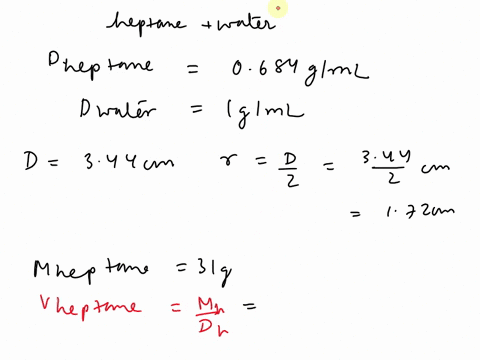 heptane + water
D heptane = 0.684 g/mL
D water = 1g/mL
D = 3.44 cm r = D/2 = 3.44/2 cm
= 1.72cm
M heptane = 31g
V heptane = Mh/Dh =